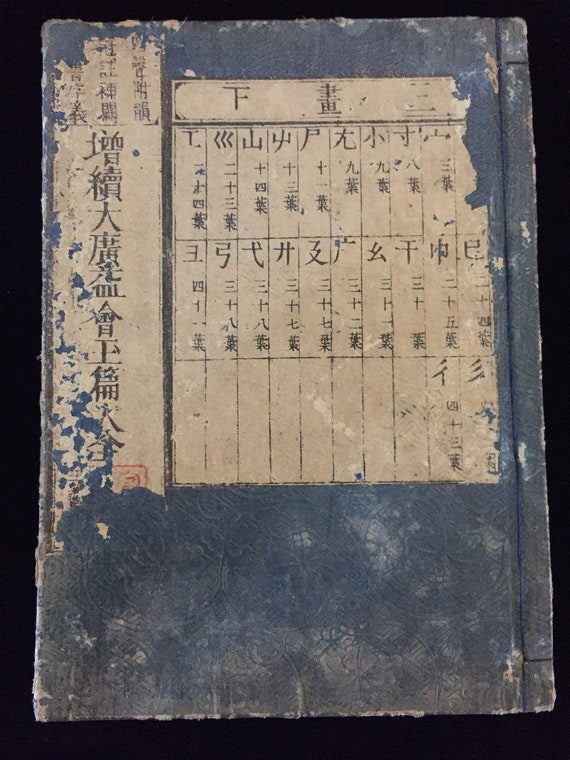 三畫下
宀 三葉
寸 八葉
小 九葉
尢 九葉
尸 十一葉
屮 十三葉
山 十四葉
巛 二十三葉
工 二十四葉
巳 二十四葉
巾 二十五葉
干 三十葉
幺 三十一葉
广 三十二葉
廴 三十七葉
廾 三十七葉
弋 三十八葉
弓 三十八葉
彐 四十一葉
彡 葉
彳 四十三葉
四聲附韻
冠註補闕
書字義
增續大廣益會玉篇大全